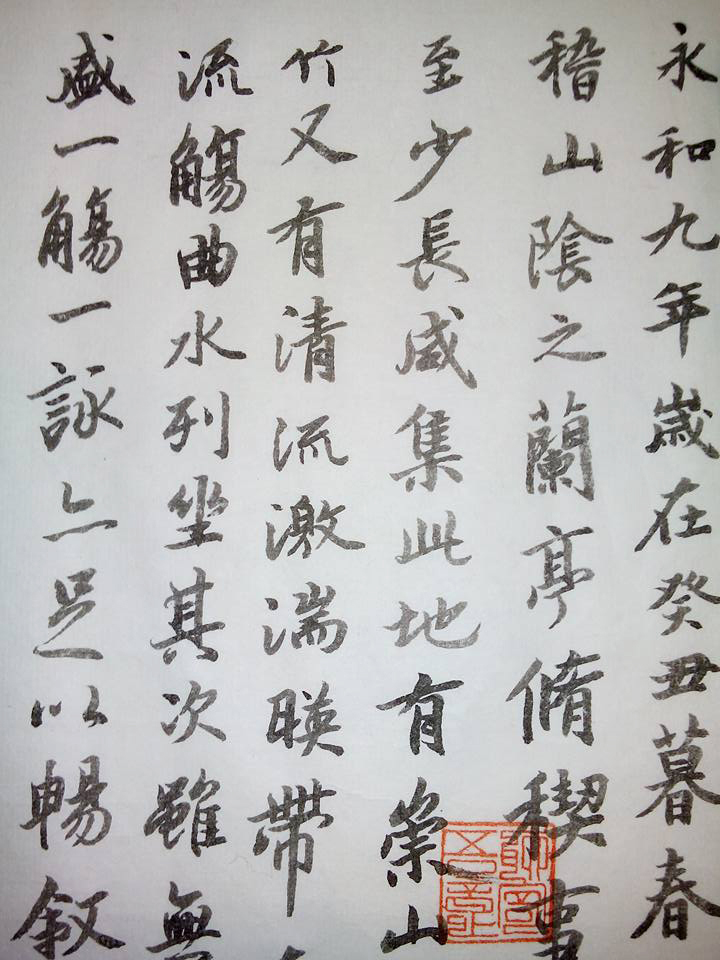 永和九年歲在癸丑暮春
稽山陰之蘭亭脩稧事
至少長咸集此地有崇山
竹又有清流激湍暎帶
流觴曲水列坐其次雖無
盛一觴一詠亦足以暢叙